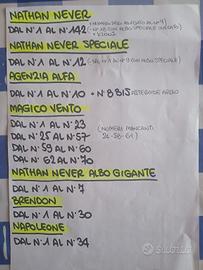 NATHAN NEVER
DAL N°1 AL N°142
NATHAN NEVER SPECIALE
DAL N°1 AL N°12
AGENZIA ALFA
DAL N°1 AL N°10 + N°8 BIS
MAGICO VENTO
DAL N°1 AL N°23
DAL N°25 AL N°57 (NUMERI MANCANTI
DAL N°59 AL N°60 24-58-61)
DAL N°62 AL N°70
NATHAN NEVER ALBO GIGANTE
DAL N°1 AL N°7
BRENDON
DAL N°1 AL N°30
NAPOLEONE
DAL N°1 AL N°34
subito